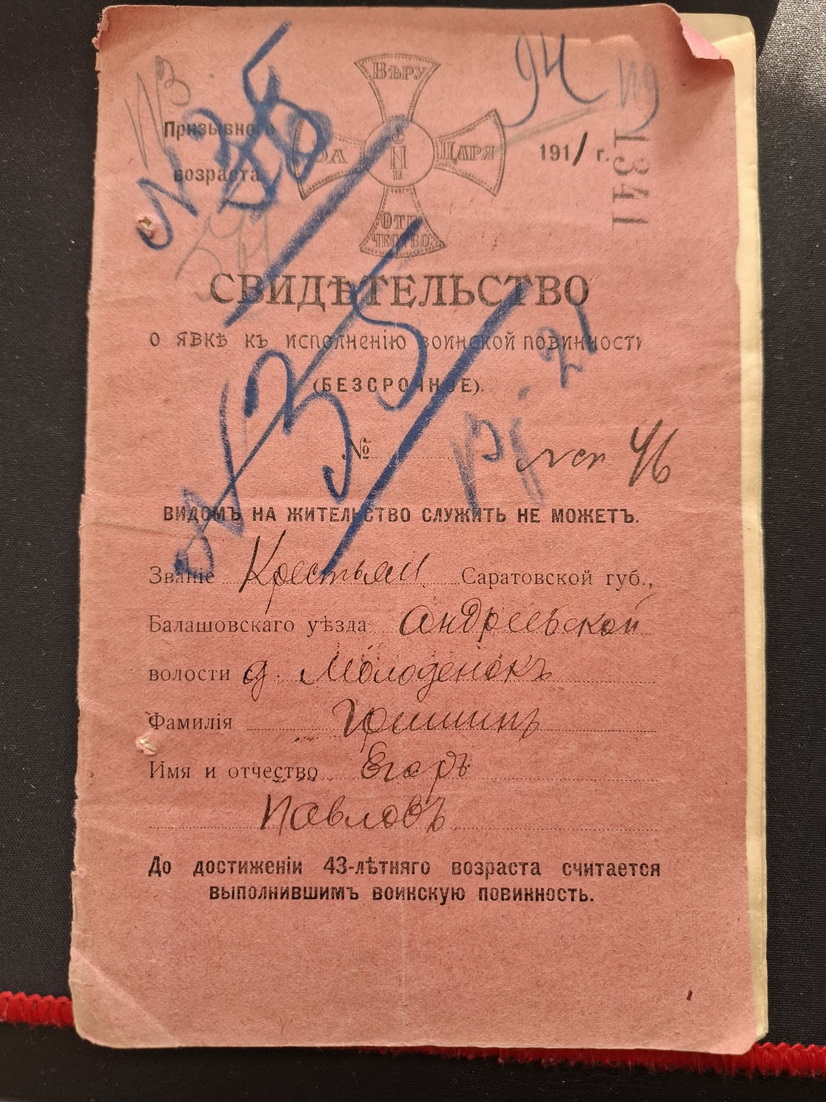 N 35
94
1341
ВѢРУ
ЗА ЦАРЯ
N II
ОТЕ
ЧЕСТВО
Призывного
возраста 1911 г.
СВИДѢТЕЛЬСТВО
О ЯВКѢ КЪ ИСПОЛНЕНІЮ ВОИНСКОЙ ПОВИННОСТИ
(БЕЗСРОЧНОЕ).
N 35
№
46
ВИДОМЪ НА ЖИТЕЛЬСТВО СЛУЖИТЬ НЕ МОЖЕТЪ.
Званіе Крестьян Саратовской губ.,
Балашовскаго уѣзда Андреевской
волости д. Молоденокъ
Фамилія Гришинъ
Имя и отчество Егоръ
Павловъ
До достиженіи 43-лѣтняго возраста считается
выполнившимъ воинскую повинность.